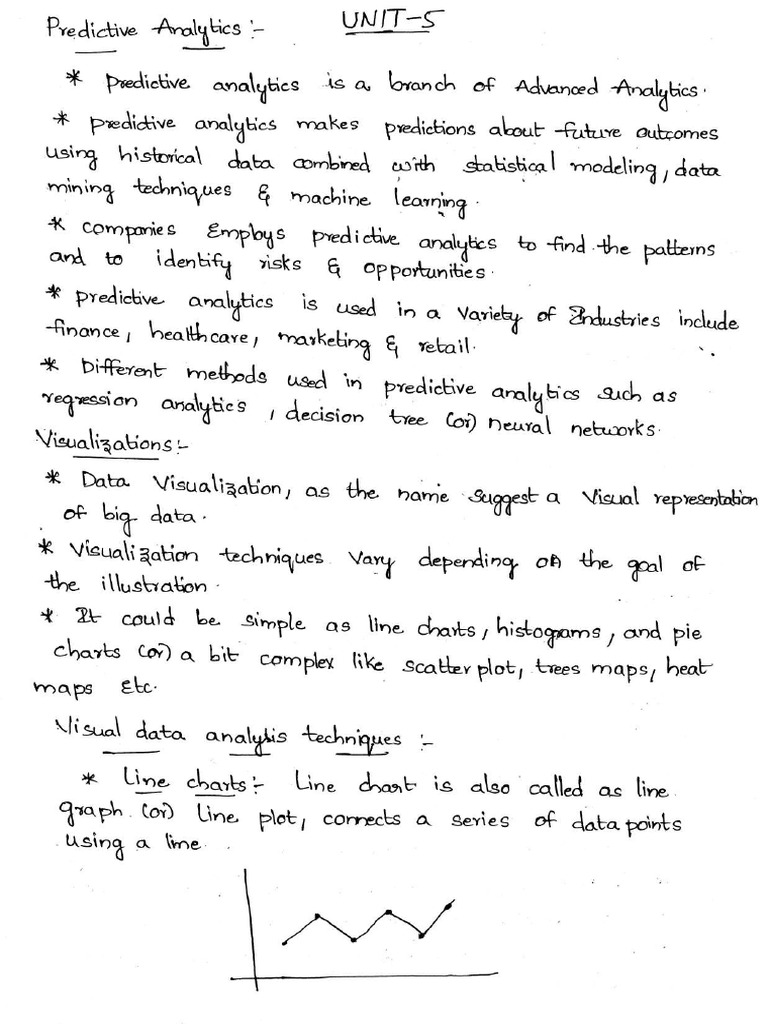 UNIT-5
Predictive Analytics :-
* predictive analytics is a branch of Advanced Analytics.
* predictive analytics makes predictions about future outcomes
using historical data combined with statistical modeling, data
mining techniques & machine learning.
* companies Employs predictive analytics to find the patterns
and to identify risks & opportunities.
* predictive analytics is used in a variety of Industries include
finance, healthcare, marketing & retail.
* Different methods used in predictive analytics such as
regression analytics, decision tree (or) neural networks.
Visualizations:-
* Data Visualization, as the name suggest a visual representation
of big data.
* Visualization techniques vary depending on the goal of
the illustration.
* It could be simple as line charts, histograms, and pie
charts (or) a bit complex like scatter plot, trees maps, heat
maps Etc.
Visual data analysis techniques :-
* Line charts:- Line chart is also called as line
graph (or) line plot, connects a series of data points
using a line.